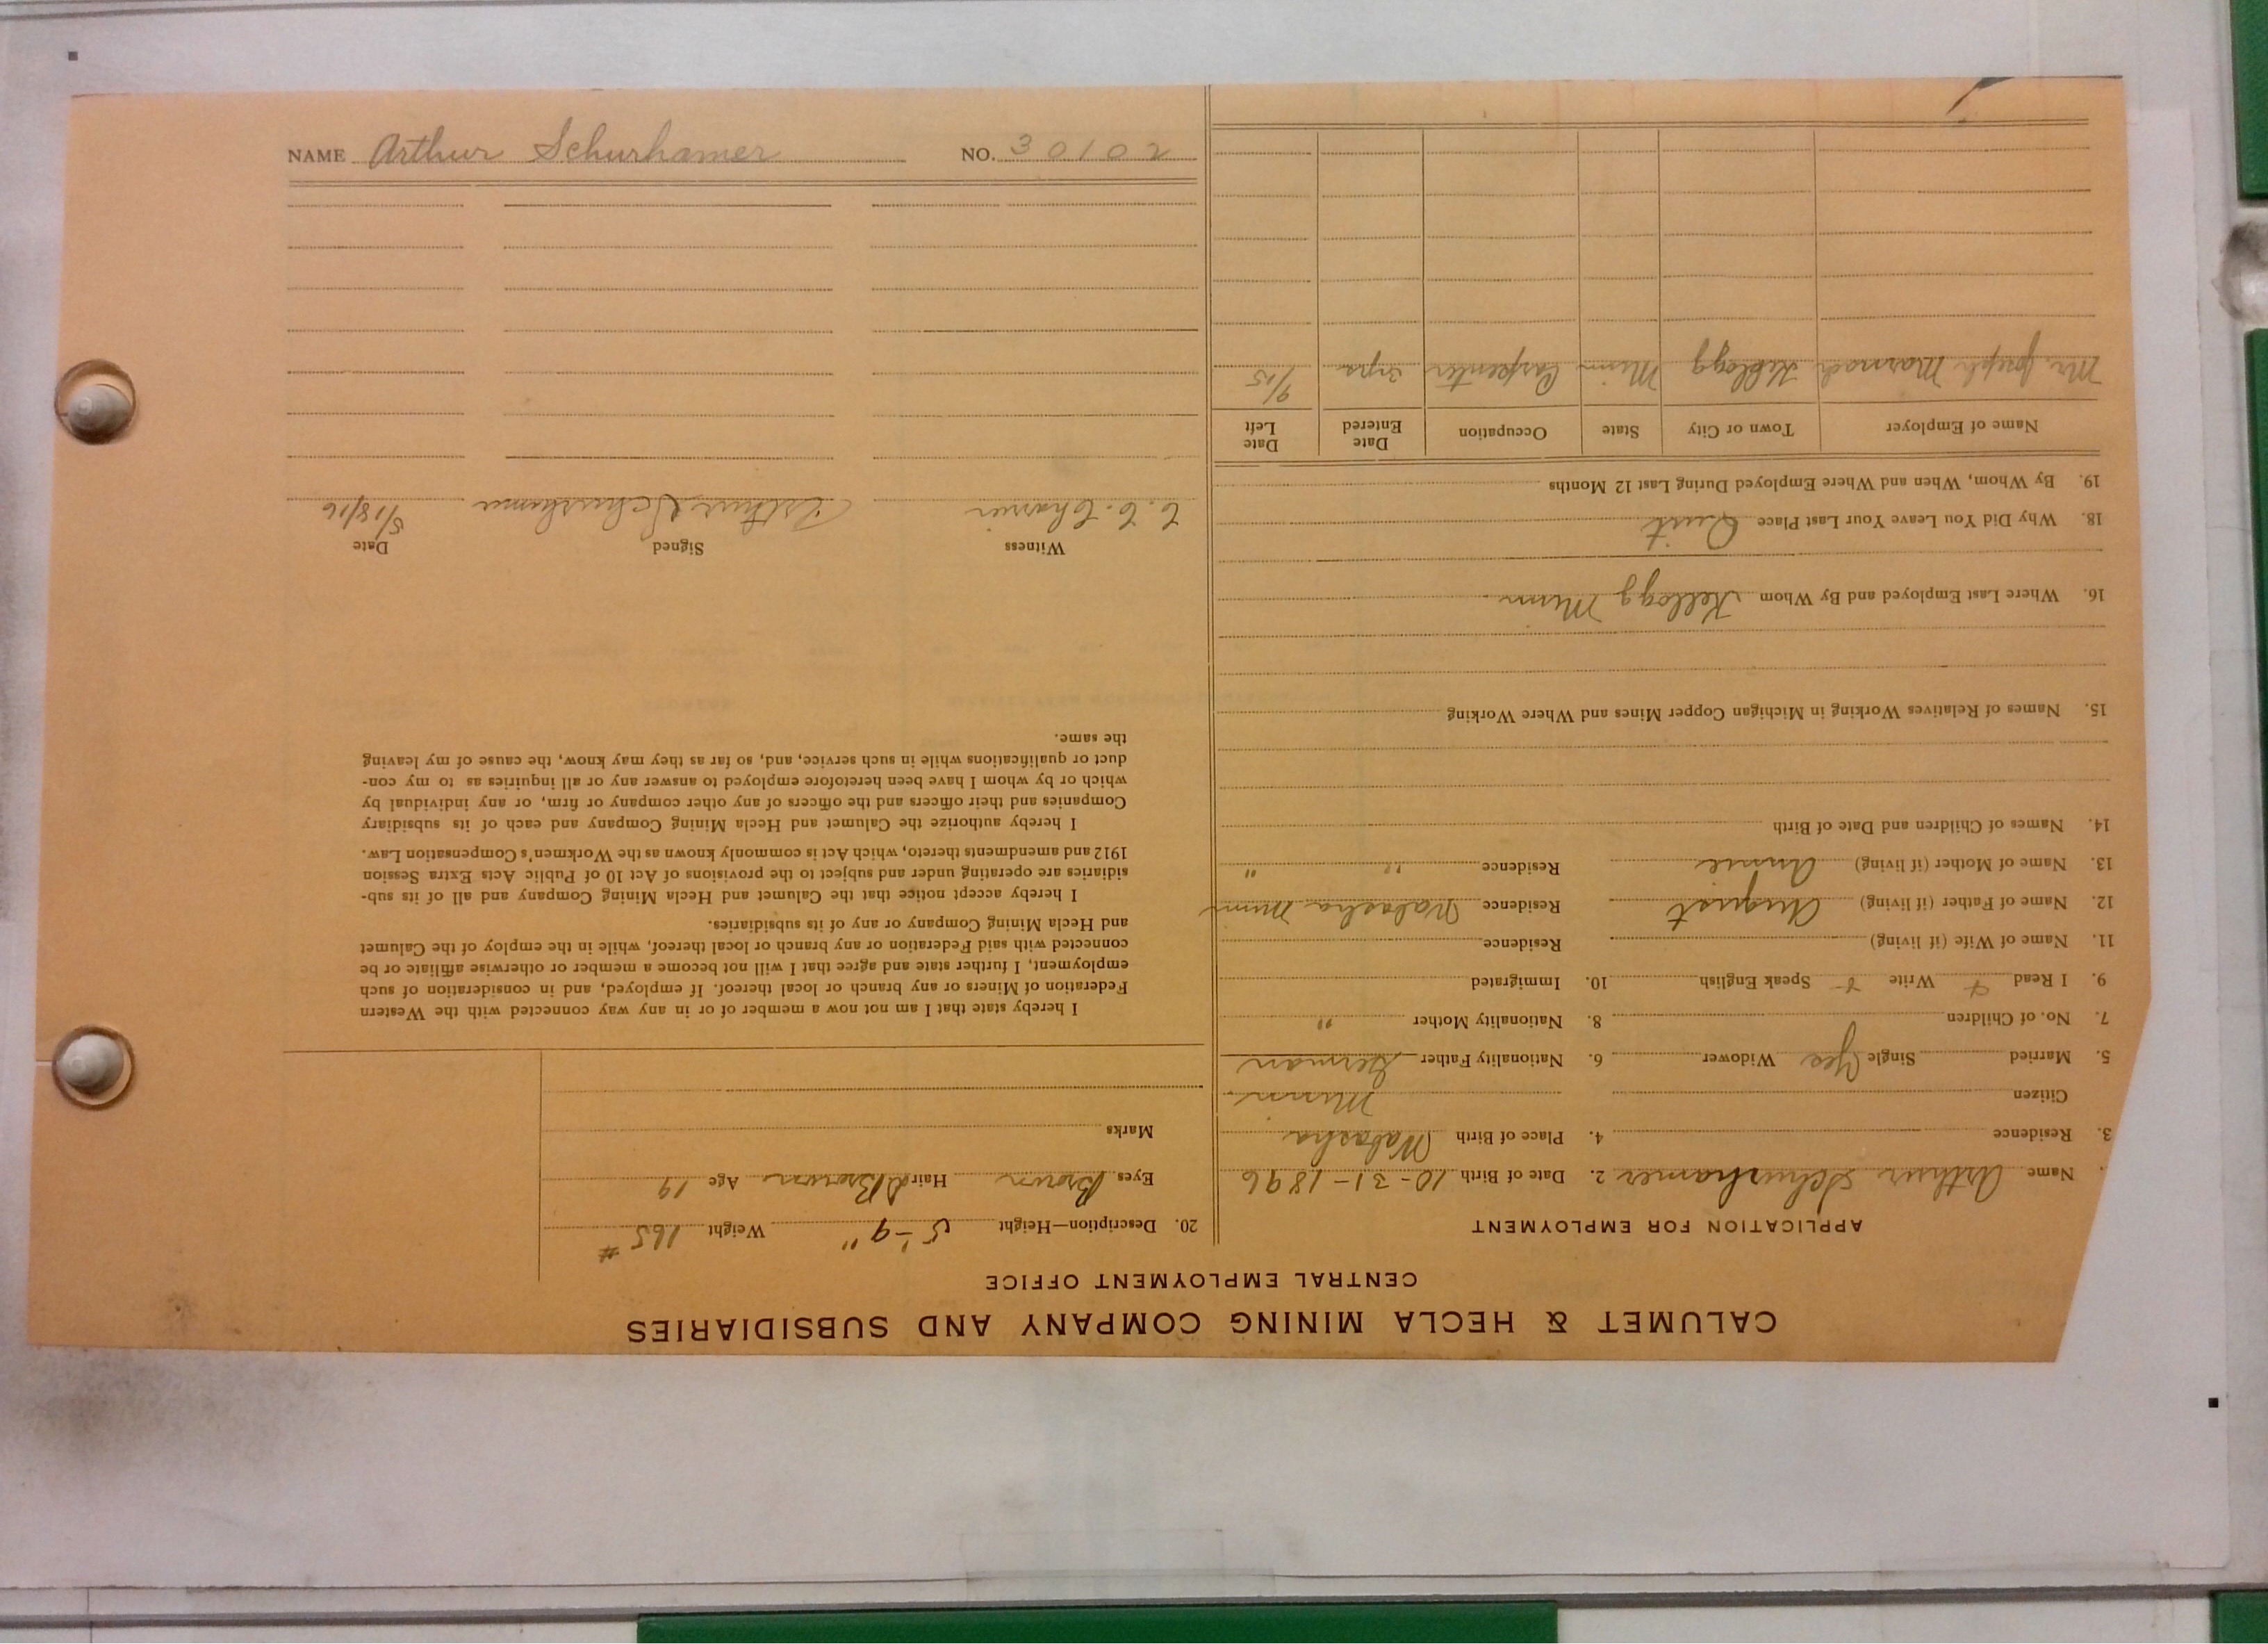 NAME Arthur Schurhamer NO. 30102
CALUMET & HECLA MINING COMPANY AND SUBSIDIARIES
CENTRAL EMPLOYMENT OFFICE
APPLICATION FOR EMPLOYMENT
Name Arthur Schurhamer 2. Date of Birth 10-31-1896
3. Residence 4. Place of Birth Wabasha
Citizen Minn
5. Married Single Yes Widower 6. Nationality Father German
7. No. of Children 8. Nationality Mother "
9. I Read Write Speak English 10. Immigrated
11. Name of Wife (if living) Residence
12. Name of Father (if living) August Residence Wabasha Minn
13. Name of Mother (if living) Annie Residence " "
14. Names of Children and Date of Birth
15. Names of Relatives Working in Michigan Copper Mines and Where Working
16. Where Last Employed and By Whom Kellogg Minn
18. Why Did You Leave Your Last Place Quit
19. By Whom, When and Where Employed During Last 12 Months
Name of Employer Town or City State Occupation Date Entered Date Left
Mr. Joseph Kellogg Minn Carpenter 9/15
20. Description—Height 5'-9" Weight 165 #
Eyes Brown Hair D Brown Age 19
Marks
I hereby state that I am not now a member of or in any way connected with the Western
Federation of Miners or any branch or local thereof. If employed, and in consideration of such
employment, I further state and agree that I will not become a member or otherwise affiliate or be
connected with said Federation or any branch or local thereof, while in the employ of the Calumet
and Hecla Mining Company or any of its subsidiaries.
I hereby accept notice that the Calumet and Hecla Mining Company and all of its sub-
sidiaries are operating under and subject to the provisions of Act 10 of Public Acts Extra Session
1912 and amendments thereto, which Act is commonly known as the Workmen's Compensation Law.
I hereby authorize the Calumet and Hecla Mining Company and each of its subsidiary
Companies and their officers and the officers of any other company or firm, or any individual by
which or by whom I have been heretofore employed to answer any or all inquiries as to my con-
duct or qualifications while in such service, and, so far as they may know, the cause of my leaving
the same.
Witness Signed Date
Arthur Schurhamer 5/18/16